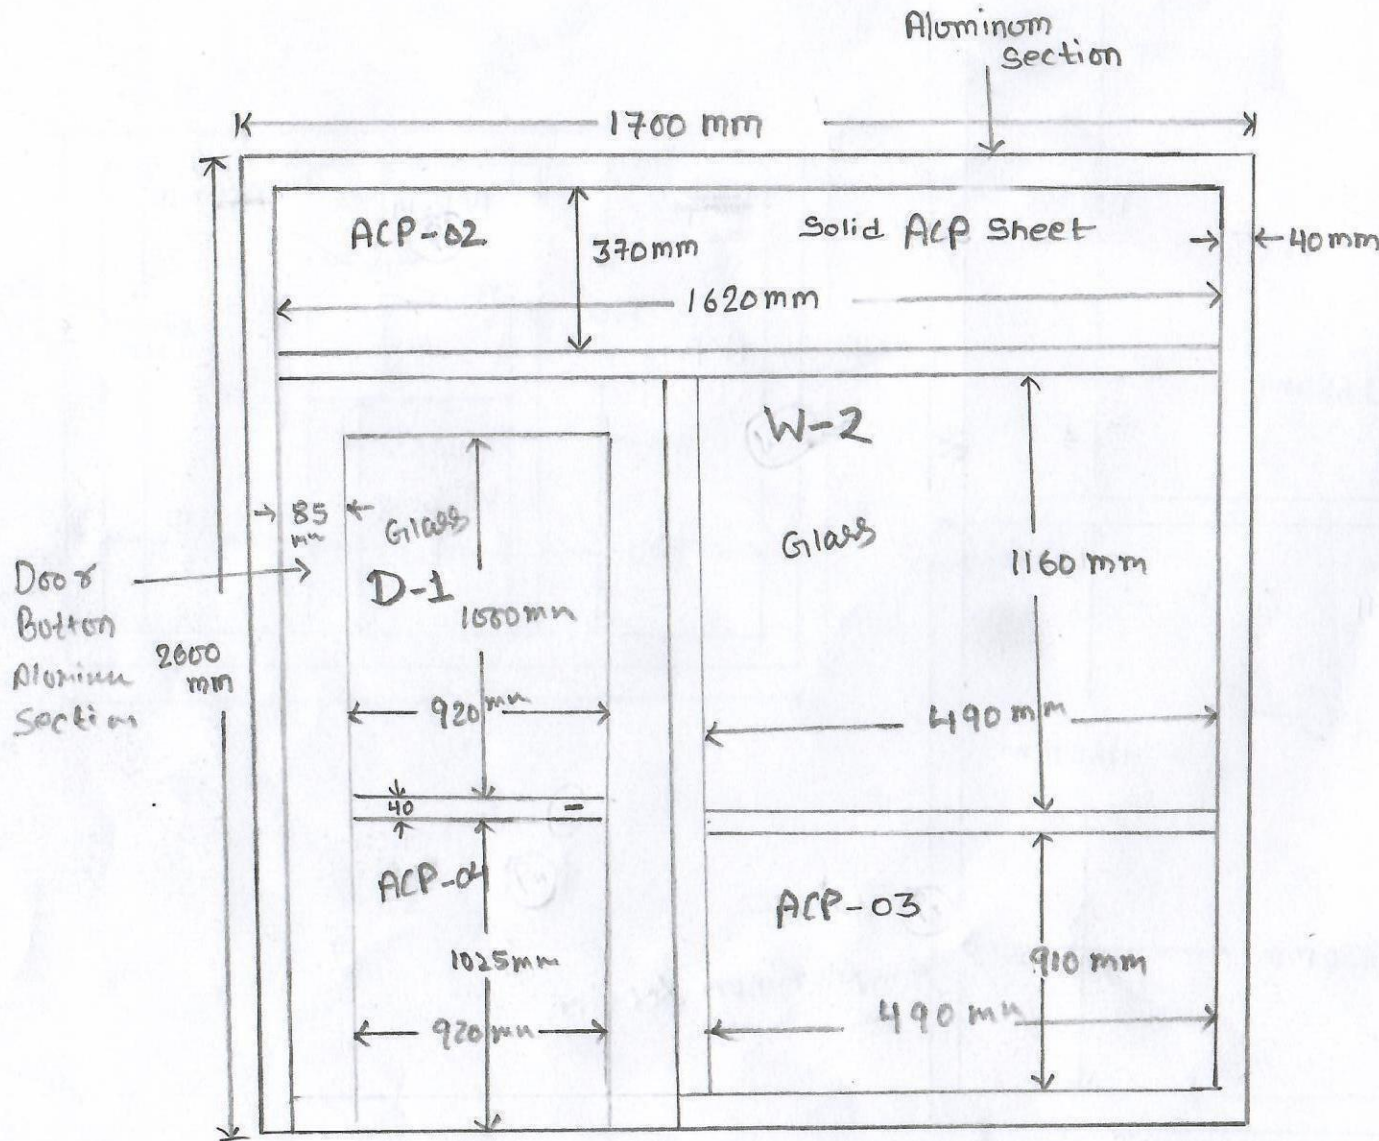 Aluminum
Section
1700 mm
ACP-02
Solid ACP Sheet
370mm
40mm
1620mm
W-2
85
mm
Glass
Glass
1160 mm
Door
Botton
Section
D-1
1000mm
2600
mm
920 mm
490 mm
40
ACP-04
ACP-03
1025mm
910 mm
920 mm
490 mm